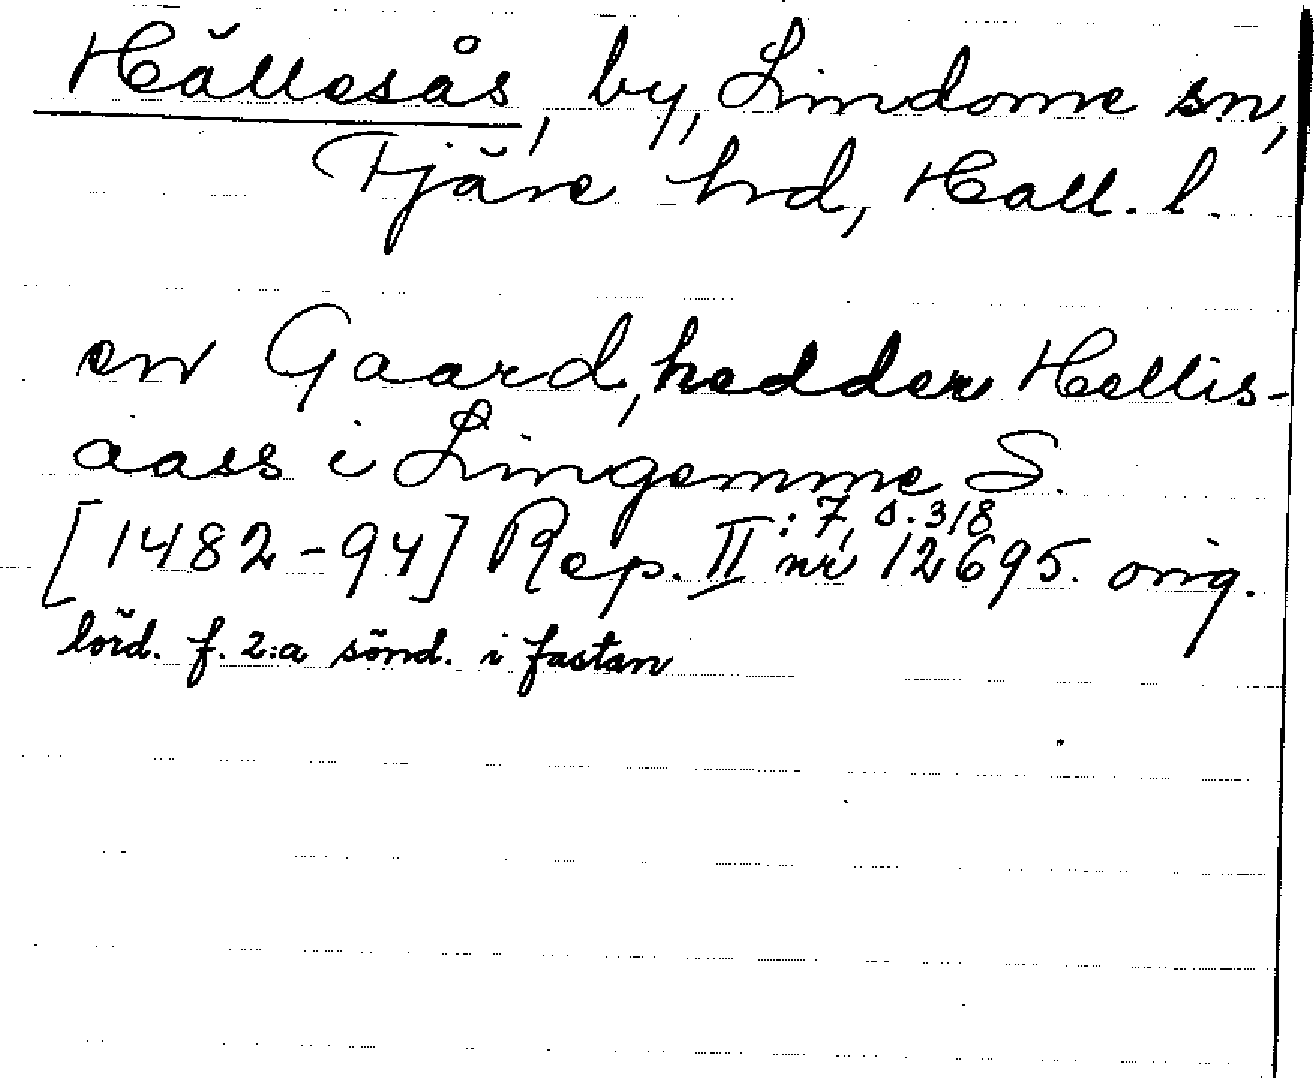 Hällesås, by, Lindome sn,
Fjäre hrd, Hall. l.
en Gaard, hedder Hellis-
aass i Lingemme S.
[1482-94] Rep. II : 7, s. 318 nr 12695. orig.
lörd. f. 2:a sönd. i fastan